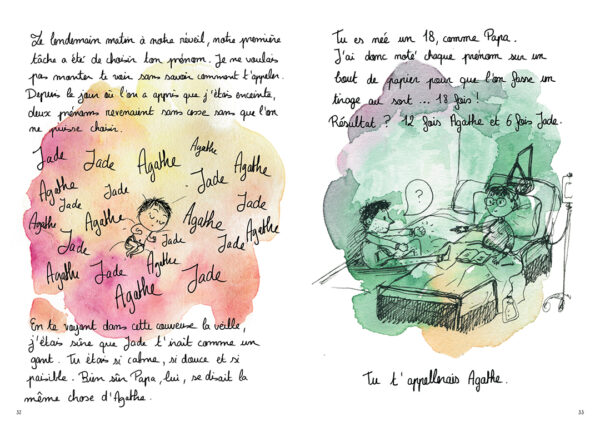 Le lendemain matin à notre réveil, notre première
tâche a été de choisir ton prénom. Je ne voulais
pas monter te voir sans savoir comment t'appeler.
Depuis le jour où l'on a appris que j'étais enceinte,
deux prénoms revenaient sans cesse sans que l'on
ne puisse choisir.
Jade Jade Agathe Agathe
Agathe Jade Jade Agathe
Agathe Jade Agathe Agathe Jade
Jade Jade Jade Agathe
Agathe Jade Agathe Jade
Agathe
En te voyant dans cette couveuse la veille,
j'étais sûre que Jade t'irait comme un
gant. Tu étais si calme, si douce et si
paisible. Bien sûr Papa, lui, se disait la
même chose d'Agathe.
32
Tu es née un 18, comme Papa.
J'ai donc noté chaque prénom sur un
bout de papier pour que l'on fasse un
tirage au sort ... 18 fois !
Résultat ? 12 fois Agathe et 6 fois Jade.
?
Tu t'appellerais Agathe.
33